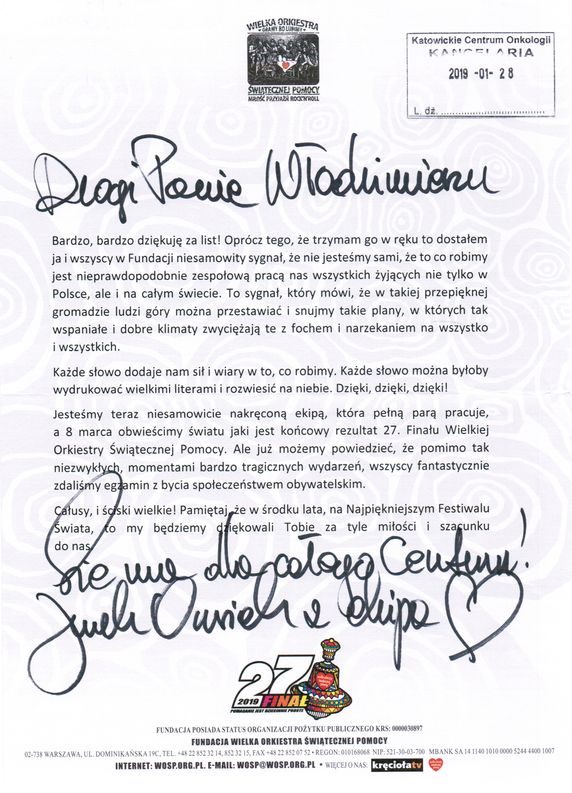 WIELKA ORKIESTRA
GRAMY DO LUNSET
ŚWIĄTECZNEJ POMOCY
MIŁOŚĆ PRZYJAŹŃ ROCK'N'ROLL
Katowickie Centrum Onkologii
KANCELARIA
2019 -01- 28
L. dz. ...............................
Drogi Panie Włodzimierzu
Bardzo, bardzo dziękuję za list! Oprócz tego, że trzymam go w ręku to dostałem
ja i wszyscy w Fundacji niesamowity sygnał, że nie jesteśmy sami, że to co robimy
jest nieprawdopodobnie zespołową pracą nas wszystkich żyjących nie tylko w
Polsce, ale i na całym świecie. To sygnał, który mówi, że w takiej przepięknej
gromadzie ludzi góry można przestawiać i snujmy takie plany, w których tak
wspaniałe i dobre klimaty zwyciężają te z fochem i narzekaniem na wszystko
i wszystkich.
Każde słowo dodaje nam sił i wiary w to, co robimy. Każde słowo można byłoby
wydrukować wielkimi literami i rozwiesić na niebie. Dzięki, dzięki, dzięki!
Jesteśmy teraz niesamowicie nakręconą ekipą, która pełną parą pracuje,
a 8 marca obwieścimy światu jaki jest końcowy rezultat 27. Finału Wielkiej
Orkiestry Świątecznej Pomocy. Ale już możemy powiedzieć, że pomimo tak
niezwykłych, momentami bardzo tragicznych wydarzeń, wszyscy fantastycznie
zdaliśmy egzamin z bycia społeczeństwem obywatelskim.
Całusy, i ściski wielkie! Pamiętaj, że w środku lata, na Najpiękniejszym Festiwalu
Świata, to my będziemy dziękowali Tobie za tyle miłości i szacunku
do nas.
Sie ma dla całego Centrum!
Jurek Owsiak z ekipą
27
2019 FINAŁ
POMAGANIE JEST DZIECINNIE PROSTE
FUNDACJA POSIADA STATUS ORGANIZACJI POŻYTKU PUBLICZNEGO KRS: 0000030897
FUNDACJA WIELKA ORKIESTRA ŚWIĄTECZNEJ POMOCY
02-738 WARSZAWA, UL. DOMINIKAŃSKA 19C, TEL. +48 22 852 32 14, 852 32 15, FAX +48 22 852 07 52 • REGON: 010168068 NIP: 521-30-03-700 MBANK SA 14 1140 1010 0000 5244 4400 1007
INTERNET: WOSP.ORG.PL. E-MAIL: WOSP@WOSP.ORG.PL • WIĘCEJ O NAS: kręciołatv